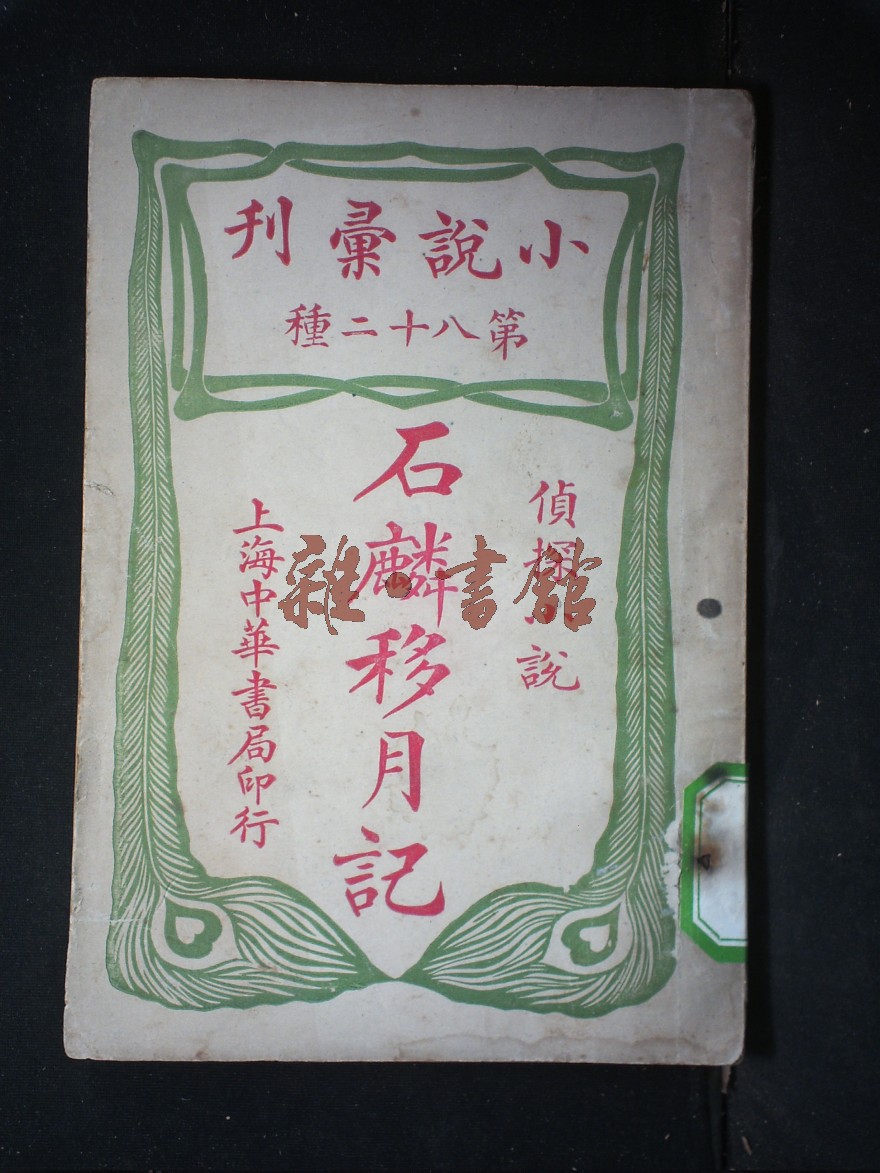 小說彙刊
第八十二種
偵探小說
石麟移月記
上海中華書局印行
雜·書館